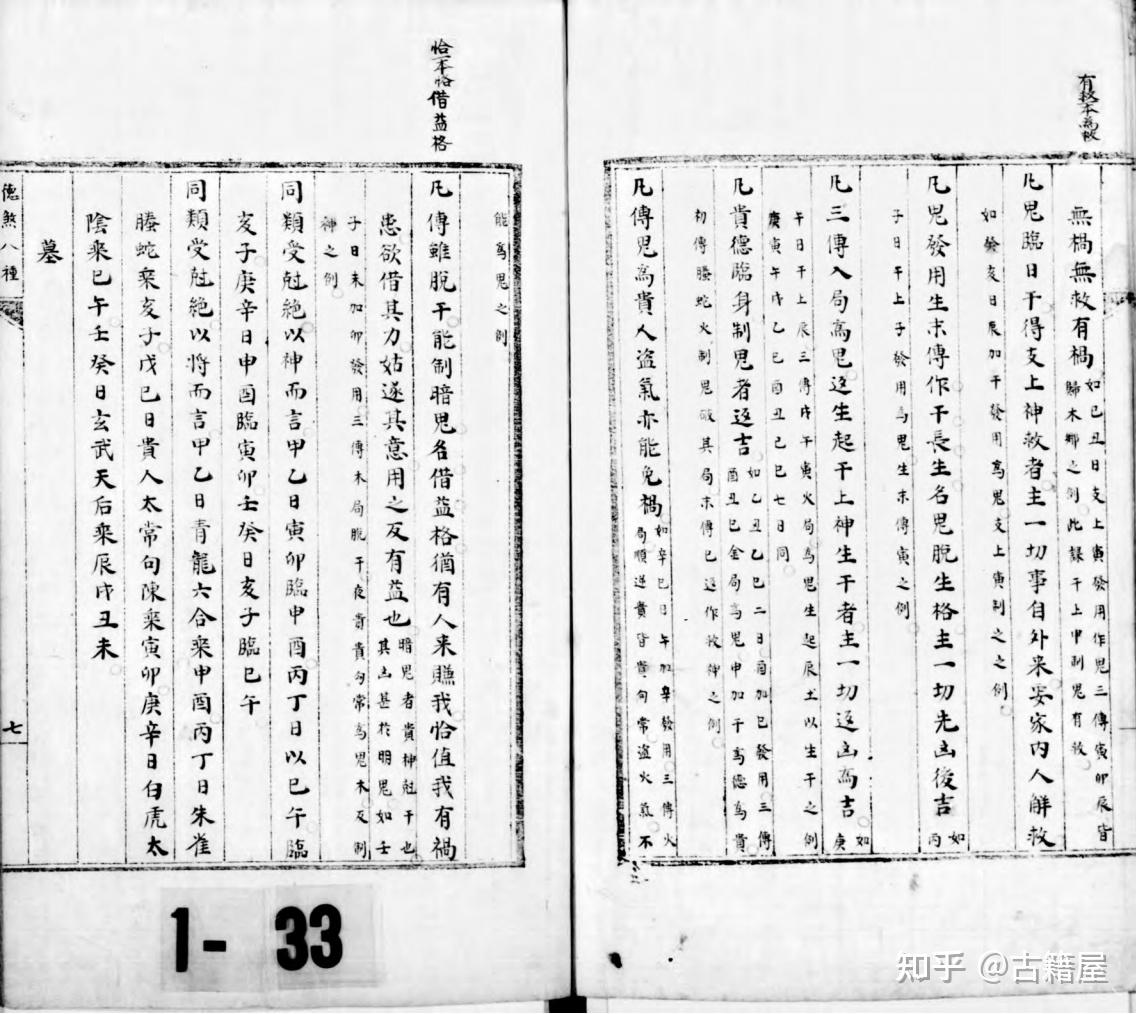 有救本為救
無禍無救有禍如己丑日支上寅發用作鬼三傳寅卯辰皆
歸木鄉之例此課干上申制鬼有救
凡鬼臨日干得支上神救者主一切事自外来娄家内人解救
如癸亥日辰加干發用為鬼支上寅制之之例
凡鬼發用生末傳作干長生名鬼脫生格主一切先凶後吉如丙
子日干上子發用為鬼生末傳寅之例
凡三傳入局為鬼迳生起干上神生干者主一切返凶為吉如庚
午日干上辰三傳戌午寅火局為鬼生起辰土以生干之例
庚寅午戌乙巳酉丑己巳七日同
凡貴德臨身制鬼者返吉如乙丑乙巳二日酉加巳發用三傳
酉丑巳金局為鬼申加干為德為貴
初傳螣蛇火制鬼破其局末傳巳返作救神之例
凡傳鬼為貴人盜氣亦能免禍如辛巳日午加辛發用三傳火
局順逆貴皆貴勾常盜火氣不
恰一本恪借益格
能為鬼之例
凡傳雖脫干能制暗鬼名借益格猶有人来賺我恰值我有禍
患欲借其力姑遂其意用之反有益也暗鬼者貴神尅干也
其凶甚於明鬼如壬
子日未加卯發用三傳木局脫干夜貴貴勾常為鬼木反制
神之例
同類受尅絶以神而言甲乙日寅卯臨申酉丙丁日以巳午臨
亥子庚辛日申酉臨寅卯壬癸日亥子臨巳午
同類受尅絶以将而言甲乙日青龍六合乘申酉丙丁日朱雀
螣蛇乘亥子戊巳日貴人太常句陳乘寅卯庚辛日白虎太
陰乘巳午壬癸日玄武天后乘辰戌丑未
墓
德煞八種
七
1-33
知乎 @古籍屋